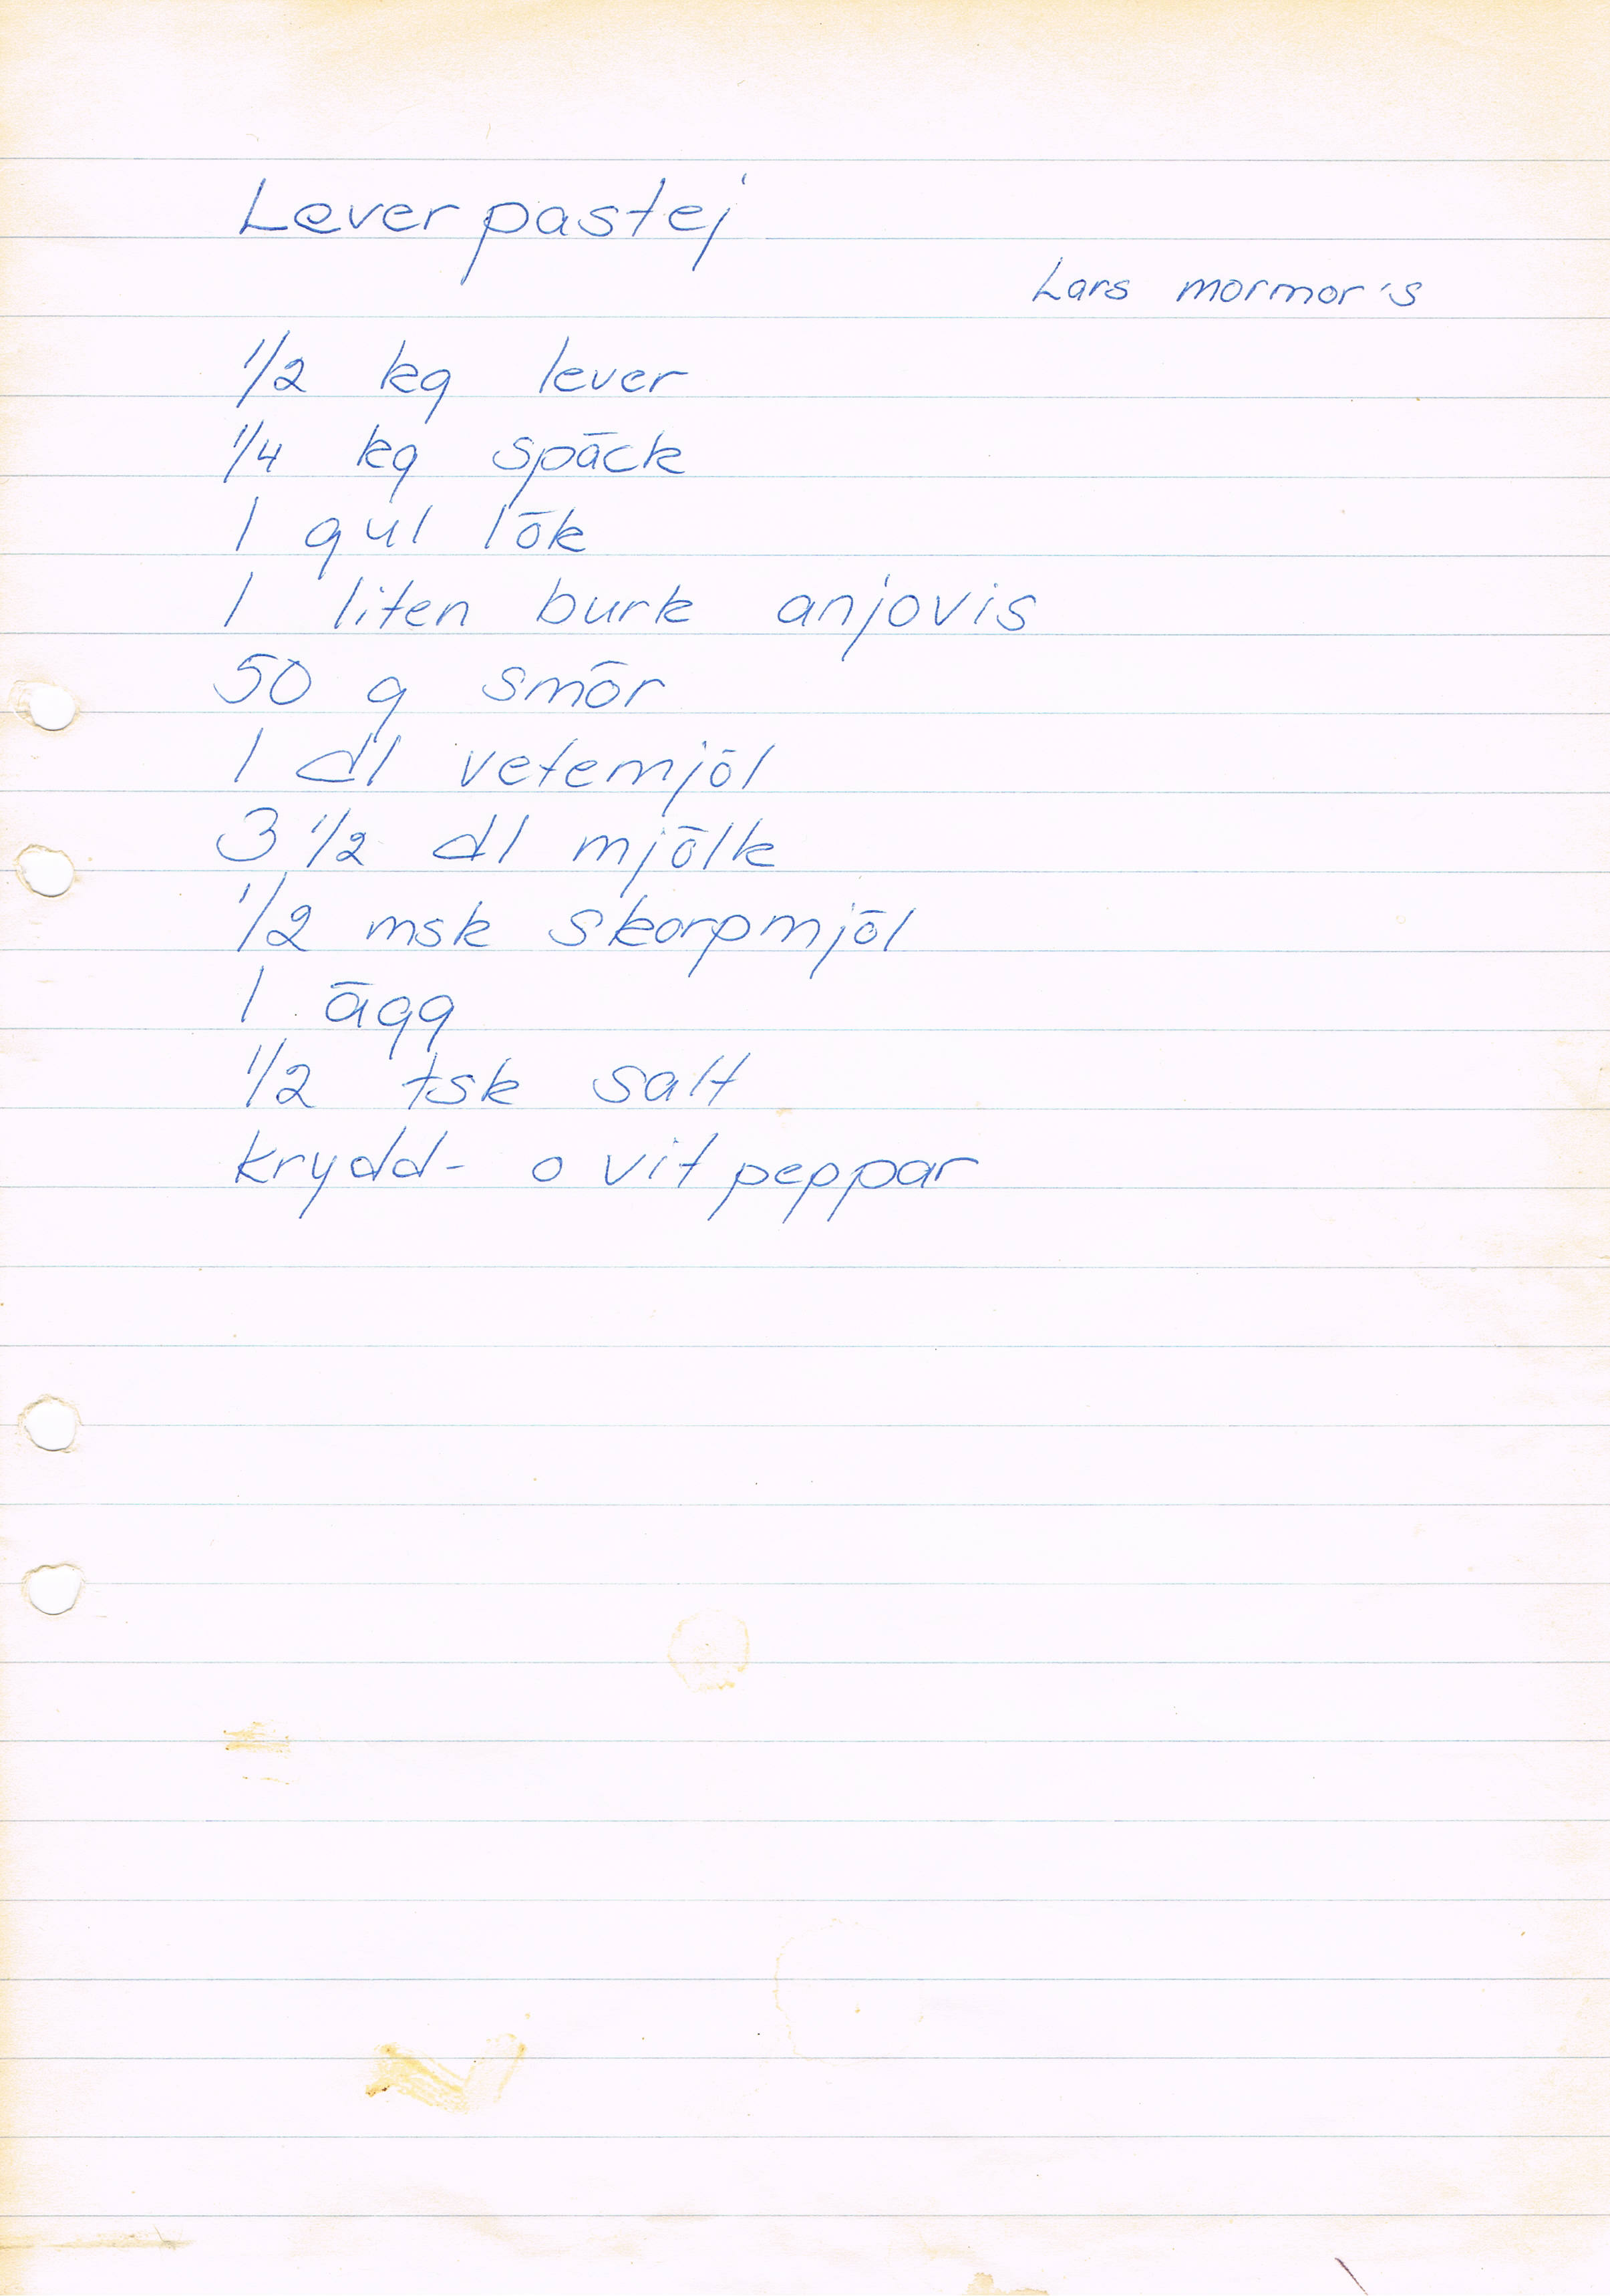 Leverpastej
Lars mormor's
1/2 kg lever
1/4 kg späck
1 gul lök
1 liten burk anjovis
50 g smör
1 dl vetemjöl
3 1/2 dl mjölk
1/2 msk skorpmjöl
1 ägg
1/2 tsk salt
krydd- o vitpeppar